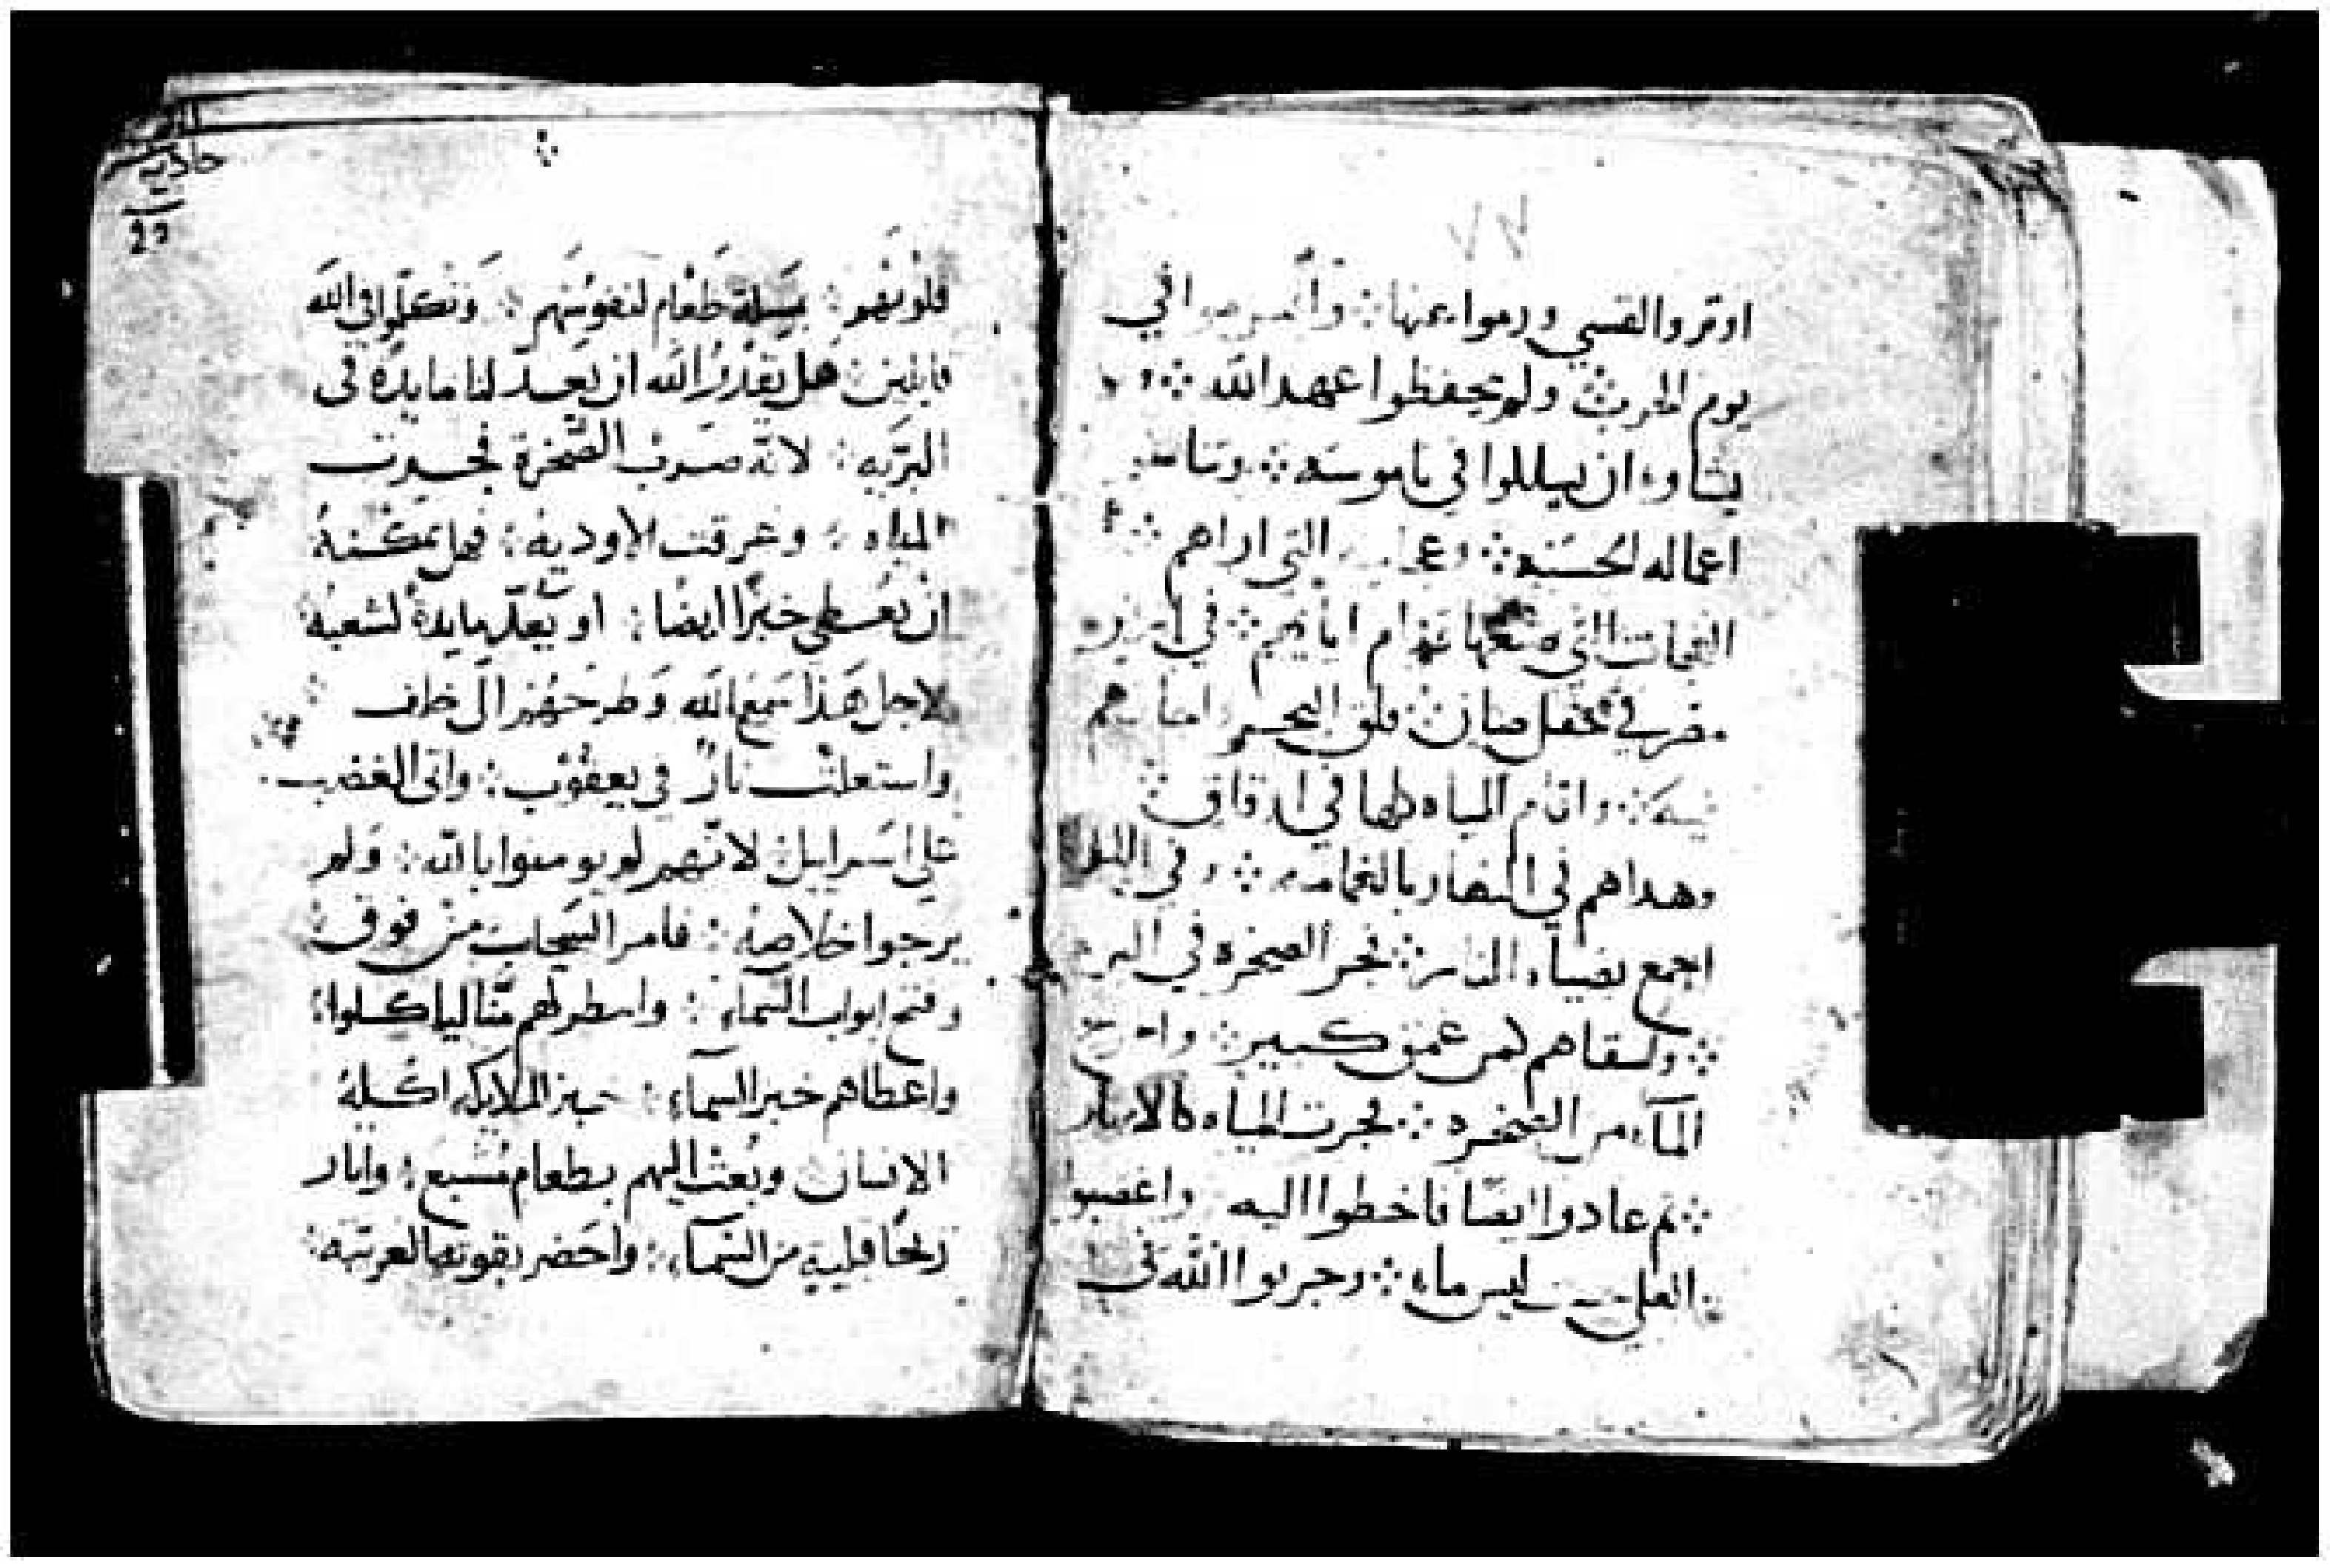 اوتروا القسي ورموا عنها ؞ وانصرعوا في
يوم الحرب ؞ ولم يحفظوا عهد الله ؞ و
يشاوءا ان يسللوا في ناموسه ؞ وتناسو
اعماله الحسنه ؞ وعجايبه التي اراهم ؞
العجايب التي صنعها قدام ابايهم ؞ في ارض
مصر في حقل صان ؞ فلق البحر واجازهم
فيه ؞ واقام المياه كلها في ازقاق ؞
وهداهم في النهار بالغمامه ؞ وفي الليل
اجمع بضياء النار ؞ فجر الصخره في البريه
؞ وسقاهم لمن عمق كبير ؞ واخرج
المآء من الصخره ؞ فجرت المياه كالانهار
؞ ثم عادوا ايضا فاخطوا اليه واغضبوا
العلي حيث ليس ماء ؞ وجربوا الله في
حاديه
قلوبهم ؞ بمسلة طعام لنفوسهم ؞ وتكلموا في الله
قايلين ؞ هل يقدر الله ان يعد لنا مايدة في
البرّيه ؞ لانه ضرب الصّخرة فجرت
المياه ؞ وغرقت الاوديه ؞ فهل يمكنه
ان يعطي خبزا ايضا ؞ او يعدّ مايدة لشعبه
لاجل هذا سمع الله وطرحهم ال طف
واشتعلت نار في يعقوب ؞ واتى الغضب
على اسراييل لانهم لم يومنوا بالله ؞ ولم
يرجوا خلاصه ؞ فامر السحاب من فوق ؞
وفتح ابواب السماء ؞ وامطر لهم منّا لياكلوا ؞
واعطاهم خبز السماء ؞ خبز الملايكه اكله
الانسان وبعث اليهم بطعام مشبع ؞ واثار
ريحا قبلية من السماء ؞ واحضر بقوته العربيه ؞